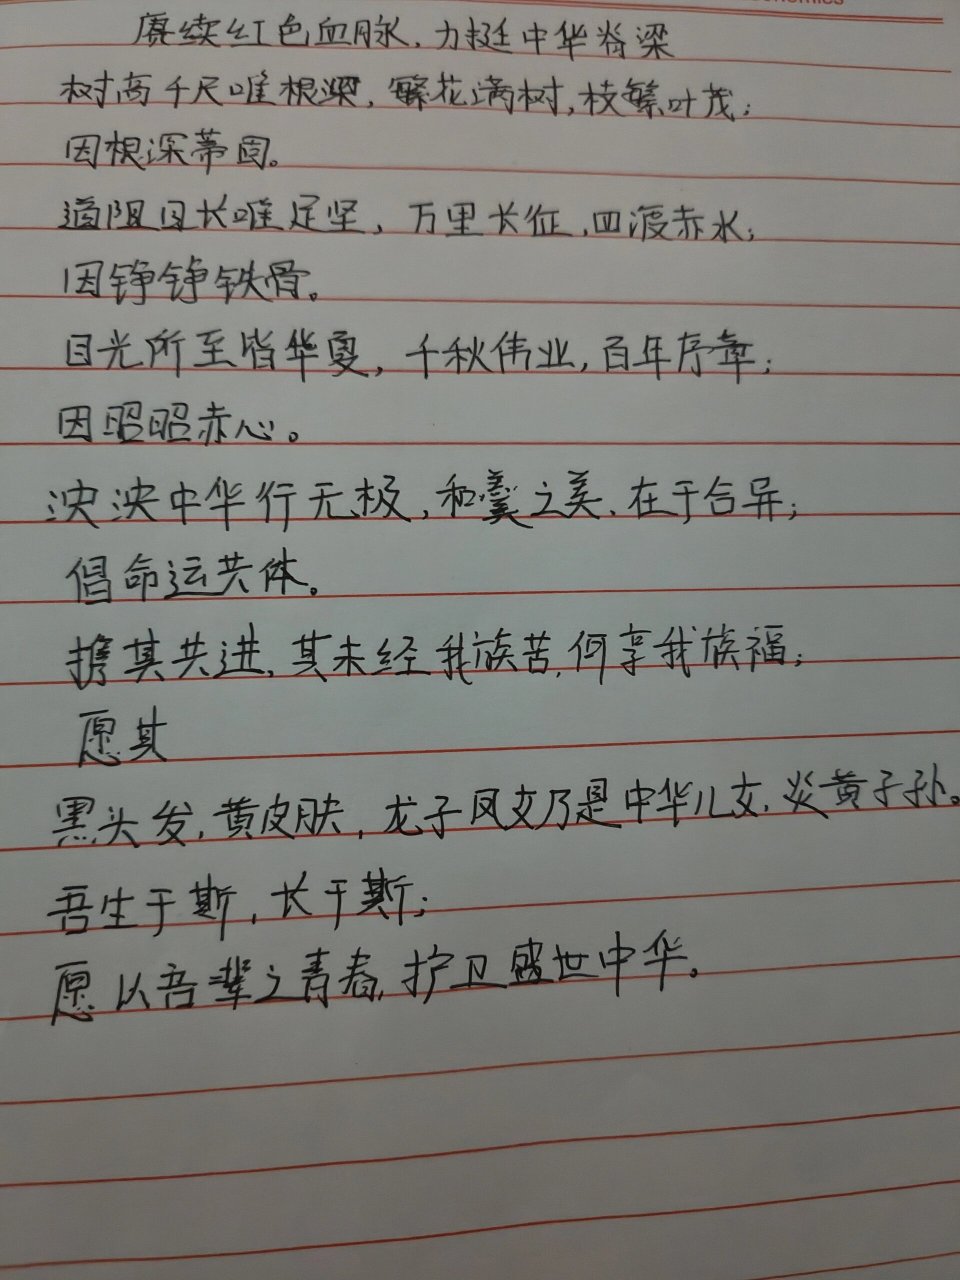 赓续红色血脉,力挺中华脊梁
树高千尺唯根深,繁花满树,枝繁叶茂;
因根深蒂固。
道阻且长唯足坚,万里长征,四渡赤水;
因铮铮铁骨。
目光所至皆华夏,千秋伟业,百年序章;
因昭昭赤心。
泱泱中华行无极,和羹之美,在于合异;
倡命运共体。
携其共进,其未经我族苦,何享我族福;
愿其
黑头发,黄皮肤,龙子凤女乃是中华儿女,炎黄子孙。
吾生于斯,长于斯;
愿以吾辈之青春,护卫盛世中华。